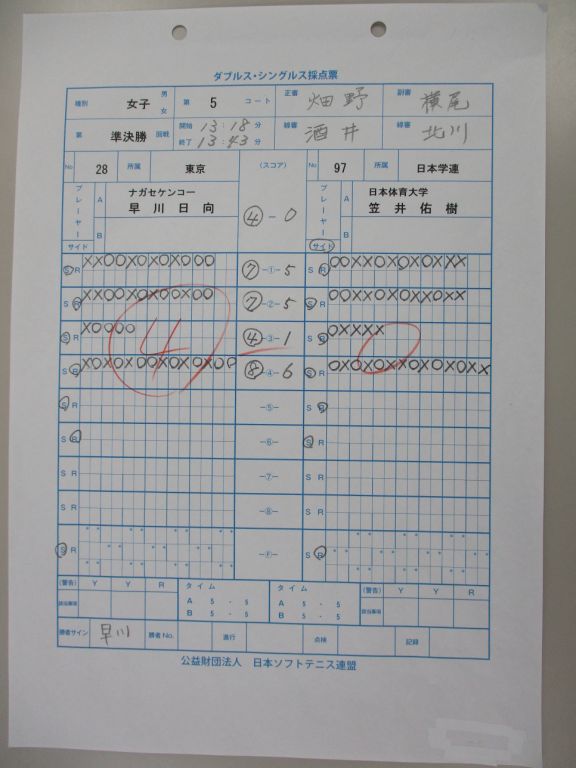 ダブルス・シングルス採点票
種別 女子 男 女 第 5 コート 正審 畑野 副審 横尾
第 準決勝 回戦 開始 13:18 分 終了 13:43 分 線審 酒井 線審 北川
No 28 所属 東京 (スコア) No 97 所属 日本学連
プレーヤー A ナガセケンコー 早川日向 ④-0 プレーヤー A 日本体育大学 笠井佑樹
B B
サイド サイド
S R XXOOXOXOXOOO ⑦-①-5 S R OOXXOXOXOXXX
S R ⑦-②-5 S R
S R XOOOO ④-③-1 S R OXXXX
4
S R XOXOXOOXOXOXOO ⑧-④-6 S R OXOXOXXOXOXOXX
S R -⑤- S R
S R -⑥- S R
S R -⑦- S R
S R -⑧- S R
S R -Ⓕ- S R
(警告) Y Y R タイム タイム (警告) Y Y R
該当事項 A 5 - 5 A 5 - 5 該当事項
B 5 - 5 B 5 - 5
勝者サイン 早川 勝者No. 進行 点検 記録
公益財団法人 日本ソフトテニス連盟